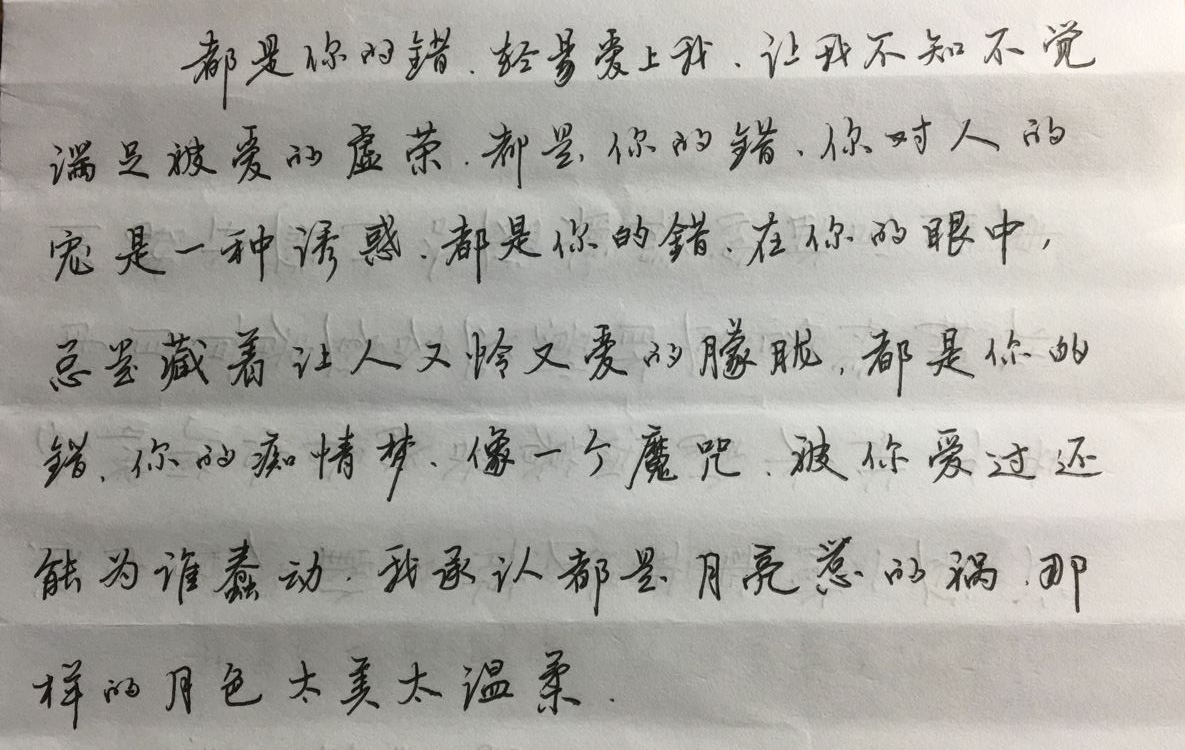 都是你的错.轻易爱上我、让我不知不觉
满足被爱的虚荣.都是你的错、你对人的
宠是一种诱惑.都是你的错、在你的眼中，
总是藏着让人又怜又爱的朦胧,都是你的
错.你的痴情梦、像一个魔咒.被你爱过还
能为谁蠢动.我承认都是月亮惹的祸.那
样的月色太美太温柔.